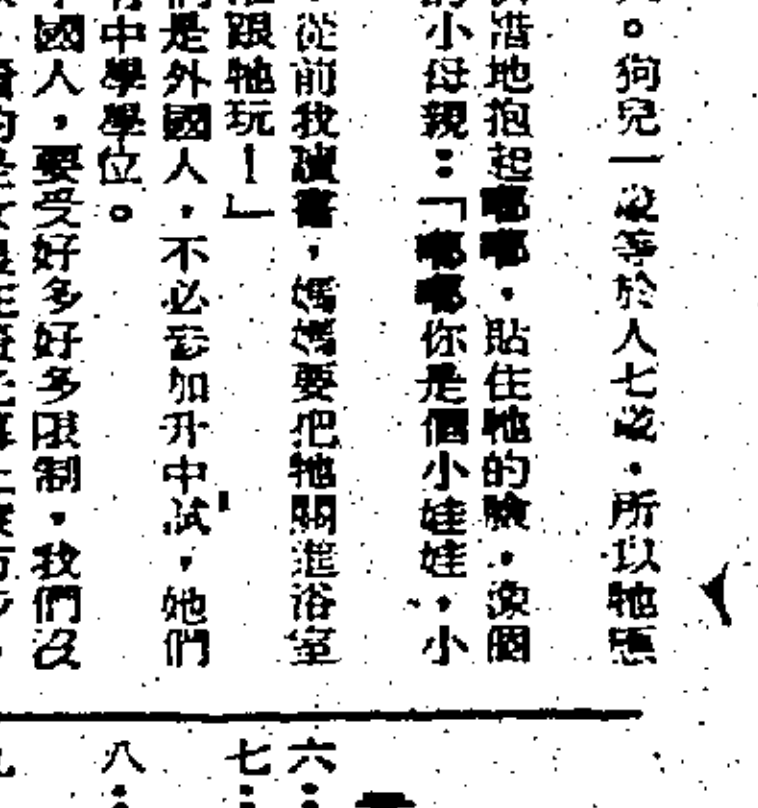 。狗兒一歲等於人七歲,所以牠應
惜地抱起嘟嘟,貼住牠的臉,像個
的小母親:「嘟嘟你是個小娃娃,小
從前我讀書,媽媽要把牠關進浴室
跟牠玩!」
們是外國人,不必參加升中試,她們
有中學學位。
國人,要受好多好多限制,我們沒
六:
七:
八: